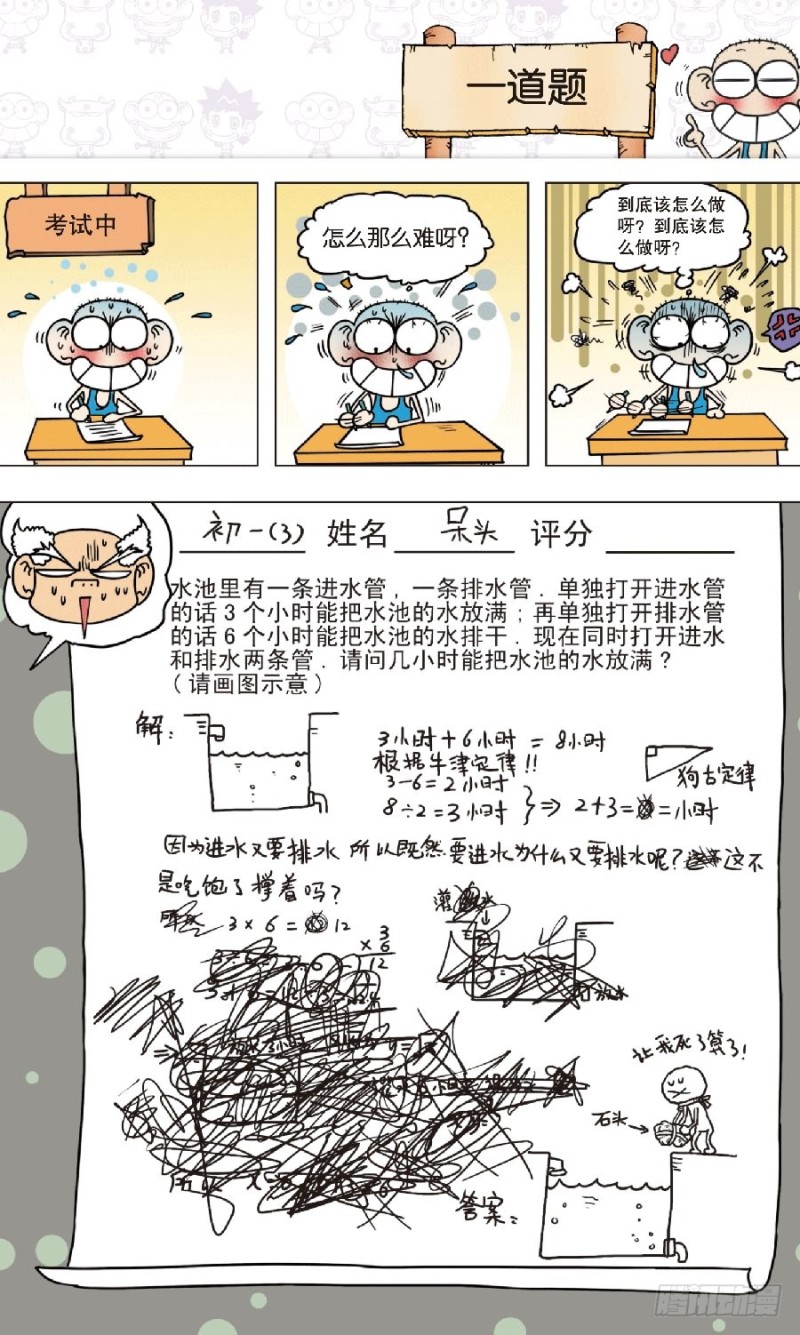 一道题
考试中
怎么那么难呀？
到底该怎么做
呀？到底该怎
么做呀？
初一(3) 姓名 呆头 评分
水池里有一条进水管，一条排水管．单独打开进水管
的话3个小时能把水池的水放满；再单独打开排水管
的话6个小时能把水池的水排干．现在同时打开进水
和排水两条管．请问几小时能把水池的水放满？
（请画图示意）
解：
3小时+6小时=8小时
根据牛津定律!!
3-6=2小时
8÷2=3小时
⇒ 2+3= =小时
狗古定律
因为进水又要排水 所以既然要进水为什么又要排水呢？这不
是吃饱了撑着吗？
3×6= 12
3
×6
12
让我死了算了！
石头→
答案：
腾讯动漫